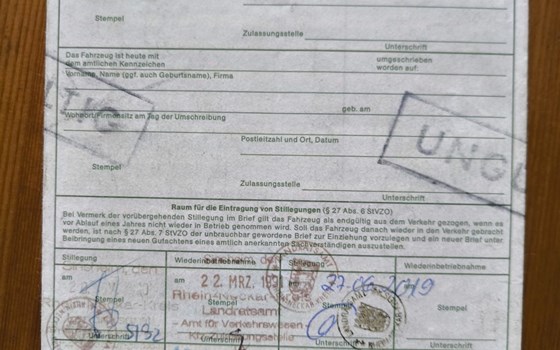 Stempel
Zulassungsstelle
Unterschrift
Das Fahrzeug ist heute mit
dem amtlichen Kennzeichen
umgeschrieben
worden auf:
Vorname, Name (ggf. auch Geburtsname), Firma
geb. am
Wohnort/Firmensitz am Tag der Umschreibung
Postleitzahl und Ort, Datum
Stempel
Zulassungsstelle
Unterschrift
LTIG
UNGÜ
Raum für die Eintragung von Stillegungen (§ 27 Abs. 6 StVZO)
Bei Vermerk der vorübergehenden Stillegung im Brief gilt das Fahrzeug als endgültig aus dem Verkehr gezogen, wenn es
vor Ablauf eines Jahres nicht wieder in Betrieb genommen wird. Soll das Fahrzeug danach wieder in den Verkehr gebracht
werden, ist nach § 27 Abs. 7 StVZO der unbrauchbar gewordene Brief zur Einziehung vorzulegen und ein neuer Brief unter
Beibringung eines neuen Gutachtens eines amtlich anerkannten Sachverständigen auszustellen.
Stillegung
Wiederinbetriebnahme
Stillegung
Wiederinbetriebnahme
am
am
am
22. MRZ.
Rhein-Neckar
Landratsamt
- Amt für Verkehrswesen -
Kfz-Zulassungsstelle
Stempel
Stempel
Stempel
Stempel
Unterschrift
Unterschrift
Unterschrift